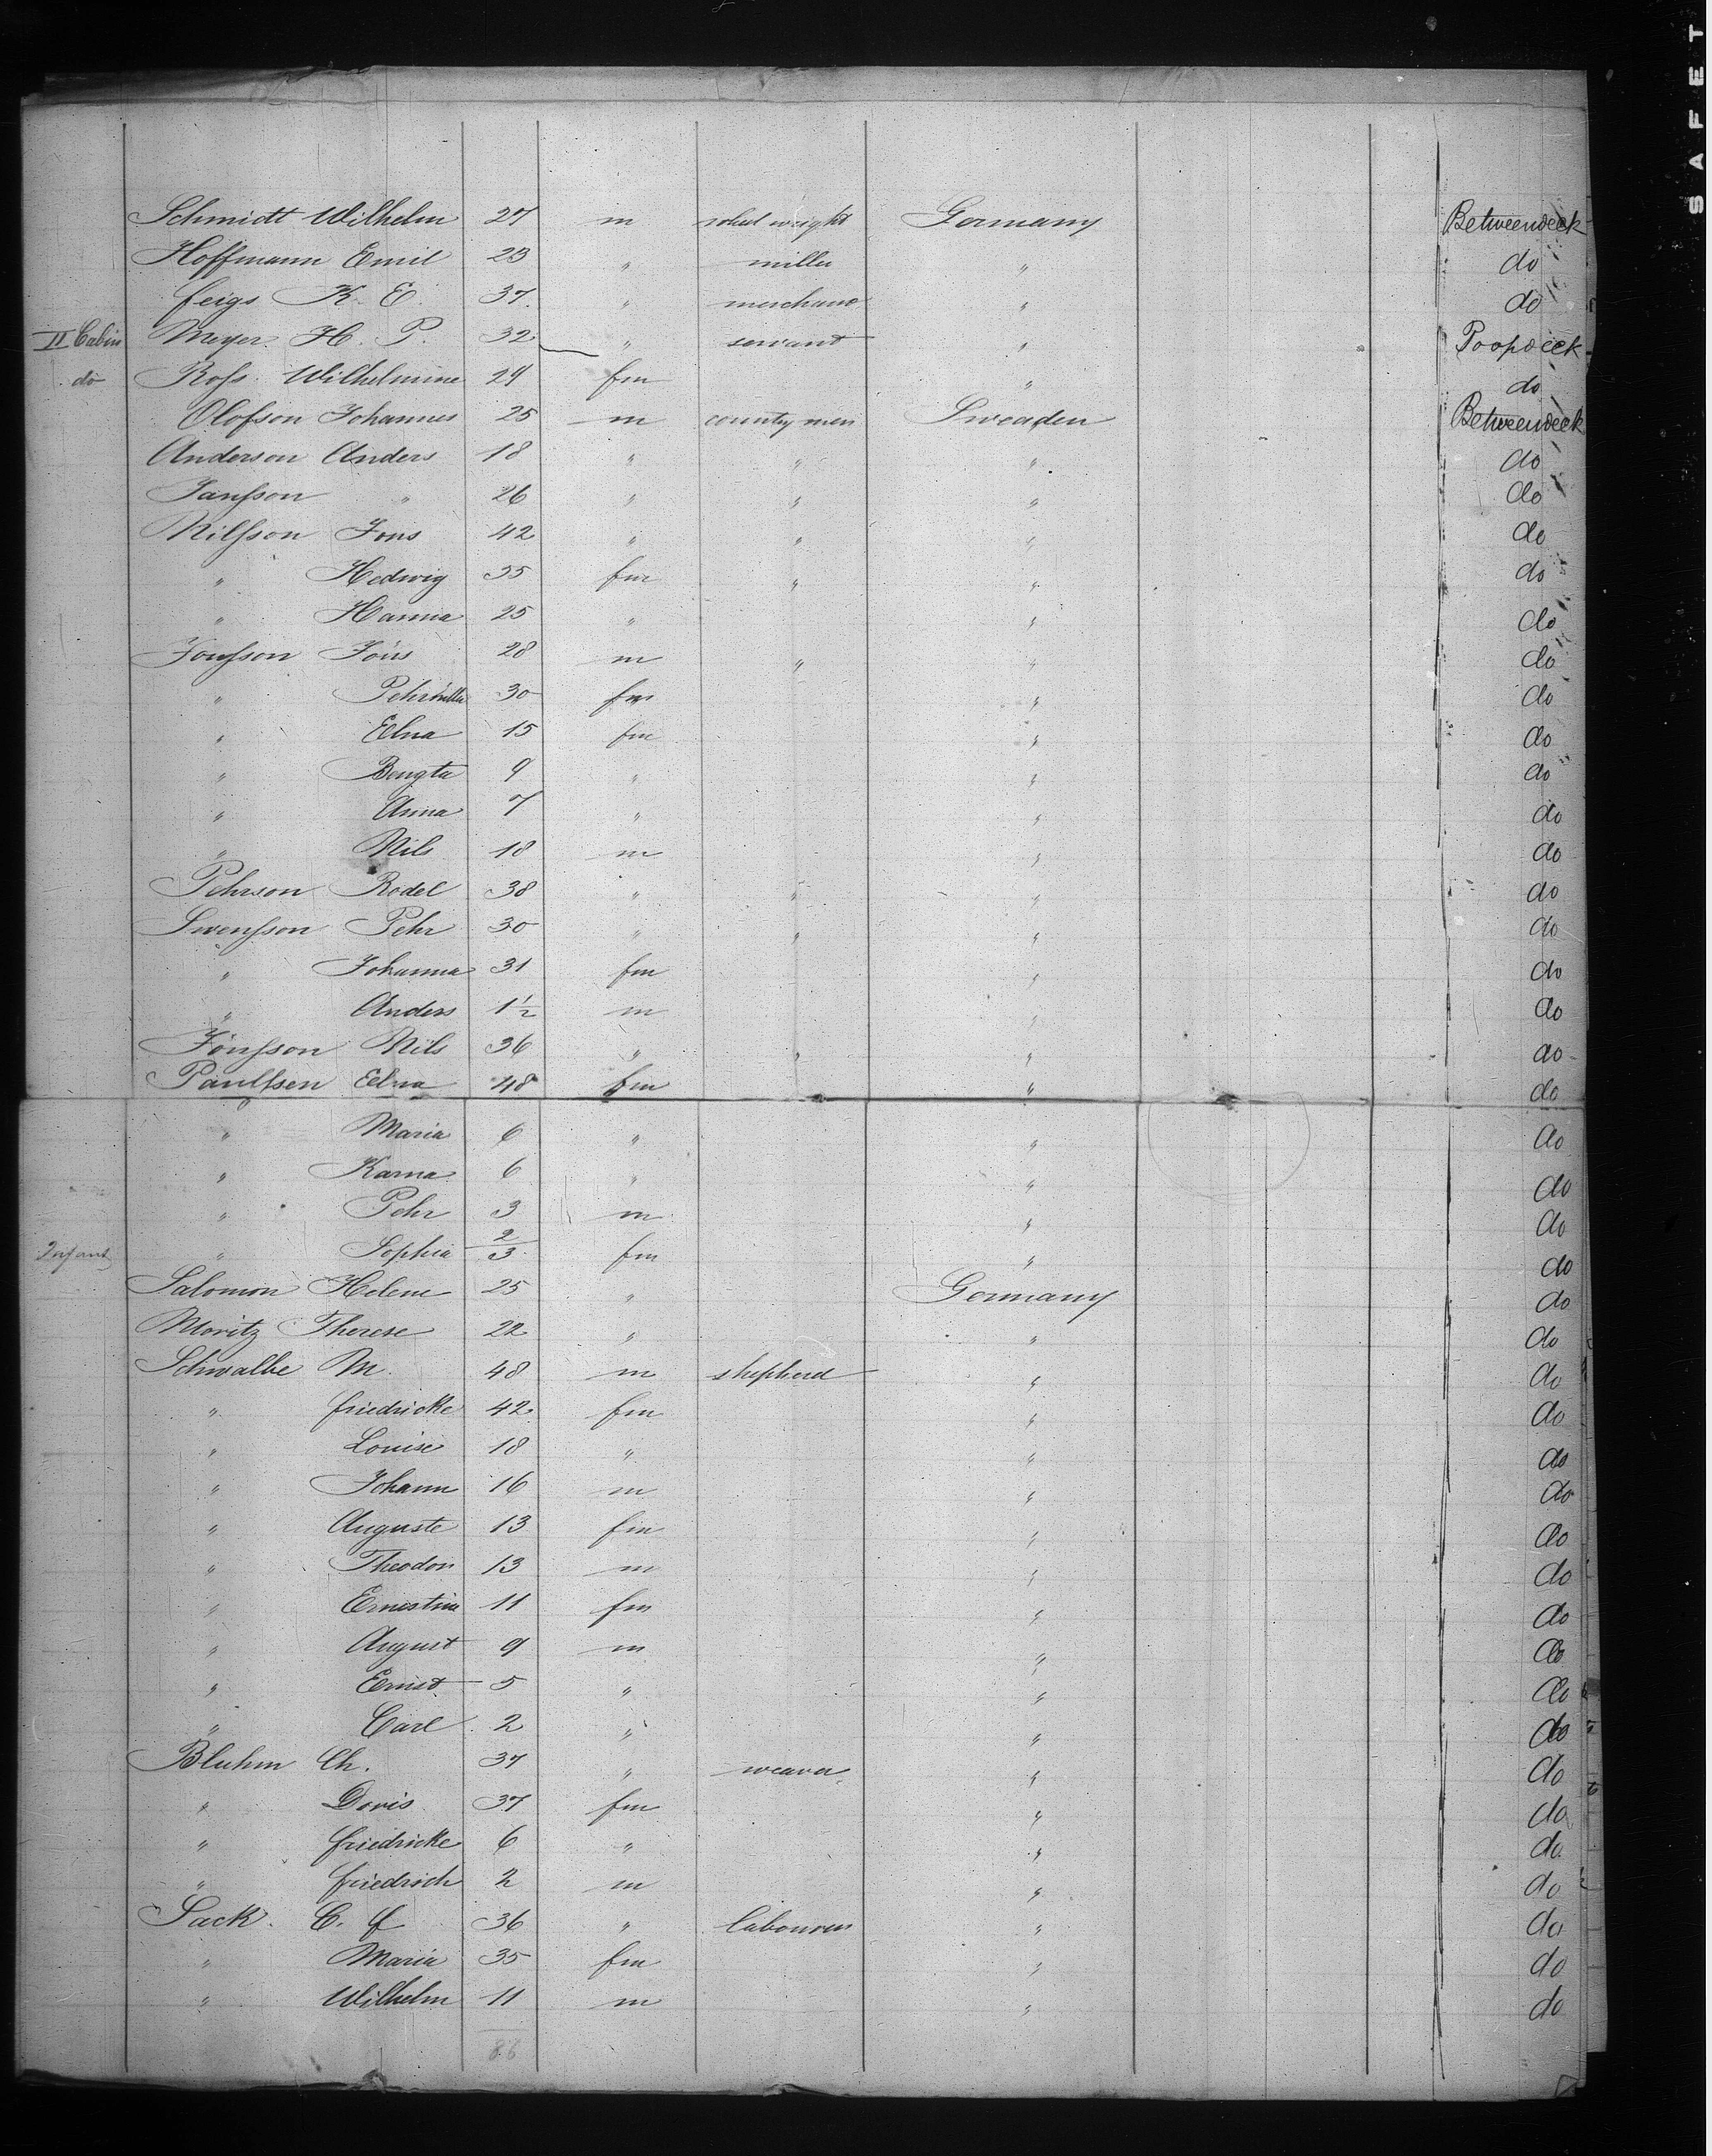 SAFET
Schmidt Wilhelm 27 m wheel wright Germany Betweendeck
Hoffmann Emil 23 " miller " do
feigs K. E. 37. " merchant " do
II Cabin Meyer. H. P. 32 " servant " Poopdeck
do Rofs. Wilhelmine 24 fm " do
Olofson Johannes 25 m countrymen Sweaden Betweendeck
Anderson Anders 18 " " " do
Janfson " 26 " " " do
Nilfson Jons 42 " " " do
" Hedwig 35 fm " " do
" Hanna 25 " " do
Jonfson Jöns 28 m " " do
" 30 fm " do
" Elna 15 fm " do
" Bengta 9 " " do
" Anna 7 " " do
" Nils 18 m " do
Pehrson Bodel 38 " " " do
Swenfson Pehr 30 " " " do
" Johanna 31 fm " do
" Anders 1½ m " do
Jönfson Nils 36 " " " do
Paulfsen Elna 48 fm " do
" Maria 6 " " do
" Karna 6 " " do
" Pehr 3 m " do
Infant " Sophia 2/3 fm " do
Salomon Helene 25 " Germany do
Moritz Therese 22 " " do
Schwalbe M. 48 m shepherd " do
" friedricke 42 fm " do
" Louise 18 " " do
" Johann 16 m " do
" Auguste 13 fm " do
" Theodor 13 m " do
" Ernestine 11 fm " do
" August 9 m " do
" Ernst 5 " " do
" Carl 2 " " do
Bluhm Ch. 37 " weaver " do
" Doris 37 fm " do
" friedricke 6 " " do
" friedrich 2 m " do
Sack. C. f 36 " labourer " do
" Maria 35 fm " do
" Wilhelm 11 m " do